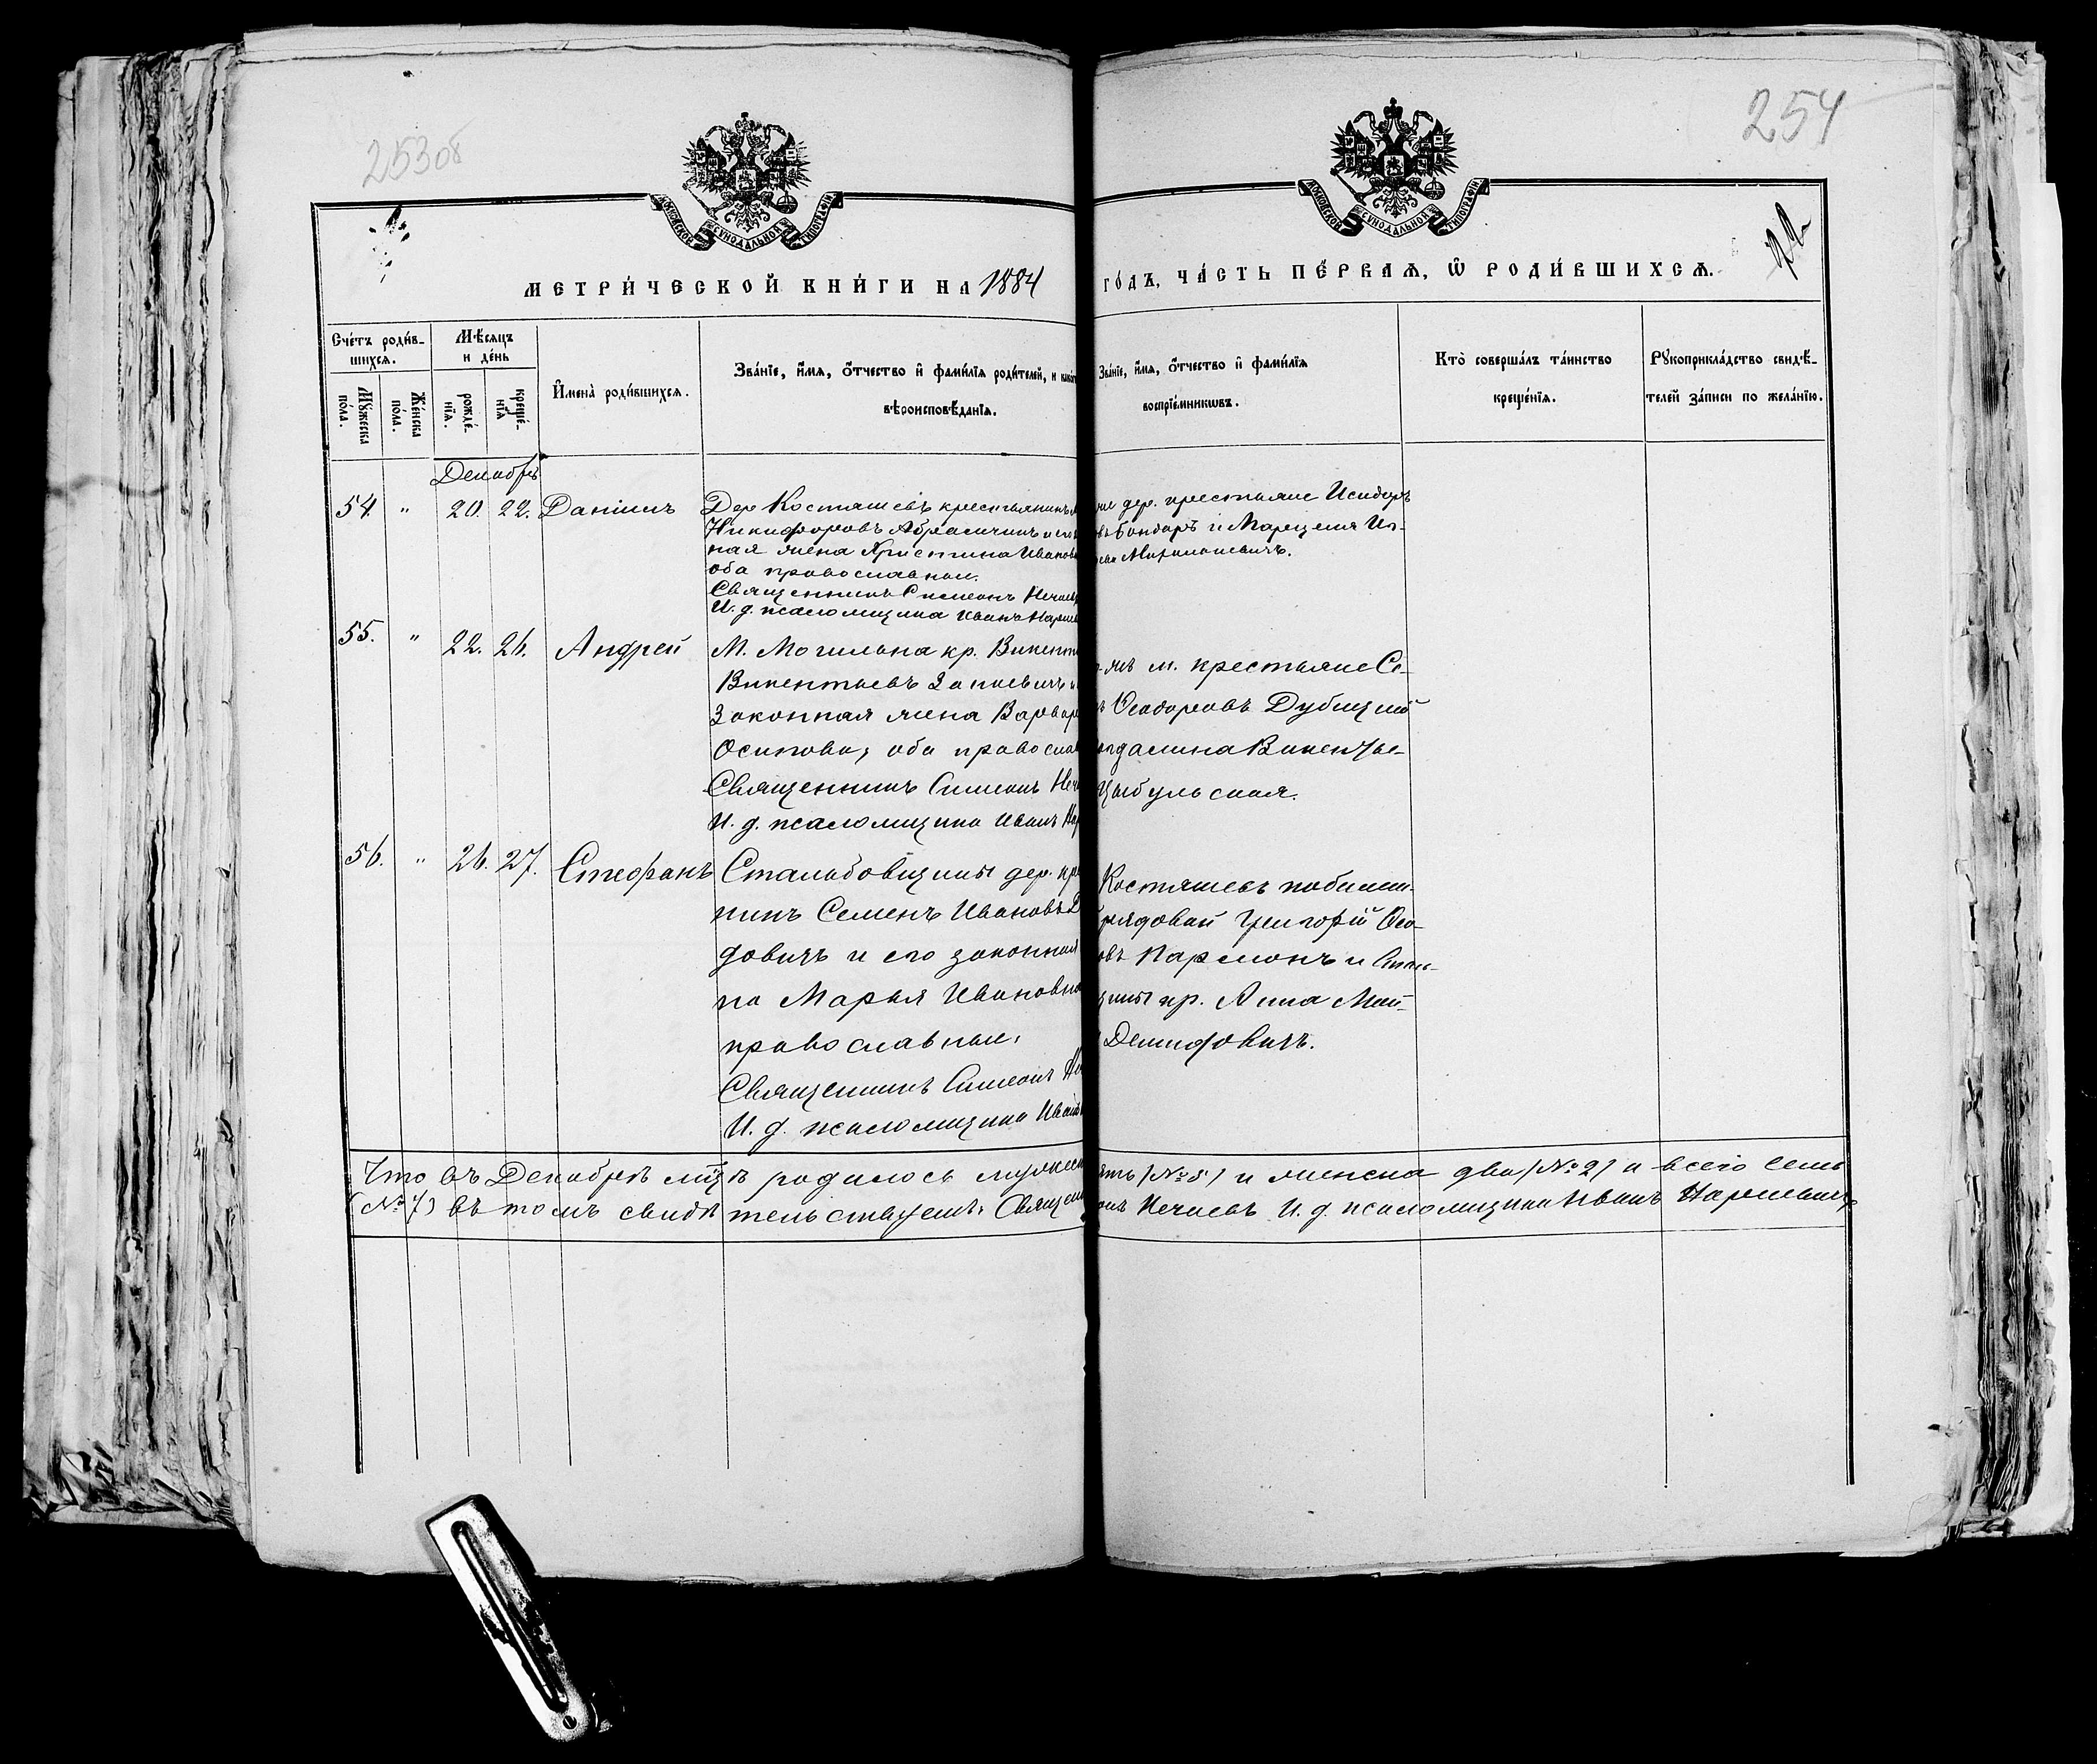 253об
254
МОСКОВСКОЙ СѴНОДАЛЬНОЙ ТИПОГРАФІИ
МОСКОВСКОЙ СѴНОДАЛЬНОЙ ТИПОГРАФІИ
МЕТРИ́ЧЕСКОЙ КНИ́ГИ НА 1884
ГО́ДЪ, ЧА́СТЬ ПЕ́РВАѦ, Ѿ РОДИ́ВШИХСѦ.
Сче́тъ роди́в-
шихсѧ.
Му́жеска
по́ла.
Же́нска
по́ла.
Мѣ́сѧцъ
и де́нь
рожде́-
нїѧ.
креще́-
нїѧ
И҆мена̀ роди́вшихсѧ.
Зва́нїе, и҆́мѧ, ѻ҆́тчество и҆ фами́лїѧ роди́телей, и
вѣроисповѣ́данїѧ.
Зва́нїе, и҆́мѧ, ѻ҆́тчество и҆ фами́лїѧ
воспрїе́мникѡвъ.
Кто̀ соверша́лъ та́инство
креще́нїѧ.
Рꙋкоприкла́дство свидѣ́-
телей за́писи по жела́нїю.
Декабрь
54. " 20. 22. Даніилъ
Дер Костяшевъ крестьянинъ
Никифоровъ Абрамчикъ и его
ная жена Христина Иванов
оба православные.
Священникъ Симеонъ Нечаев
И. д. псаломщика Иванъ Нарке
дер. крестьяне Исидоръ
Бондарь и Марцелия
55. " 22. 26. Андрей
М. Могильна кр. Викент
Викентьевъ Занкевичъ и
Законная жена Варвар
Осипова, оба православ
Священникъ Симеонъ Неч
И. д. псаломщика Иванъ Нар
м. крестьяне Се-
Ѳеодоровъ Дубицкий
гдалина Викентье-
Цыбульская.
56. " 26. 27. Стефанъ
Стальбовщины дер. кре
нинъ Семенъ Ивановъ Д
довичъ и его законная
на Марья Ивановна
православные.
Священникъ Симеонъ Не
И. д. псаломщика Иванъ
Костяшевъ побилет-
рядовой Григорій Ѳео-
овъ Кармонъ и Сталь-
щины кр. Анна Мат-
Демидовичъ.
Что въ Декабрѣ мцѣ родилось мужеск
ять (№ 5) и женска два (№ 2) и всего семь
(№ 7) въ томъ свидѣтельствуемъ: Священ
онъ Нечаевъ И. д. псаломщика Иванъ Наркевичъ